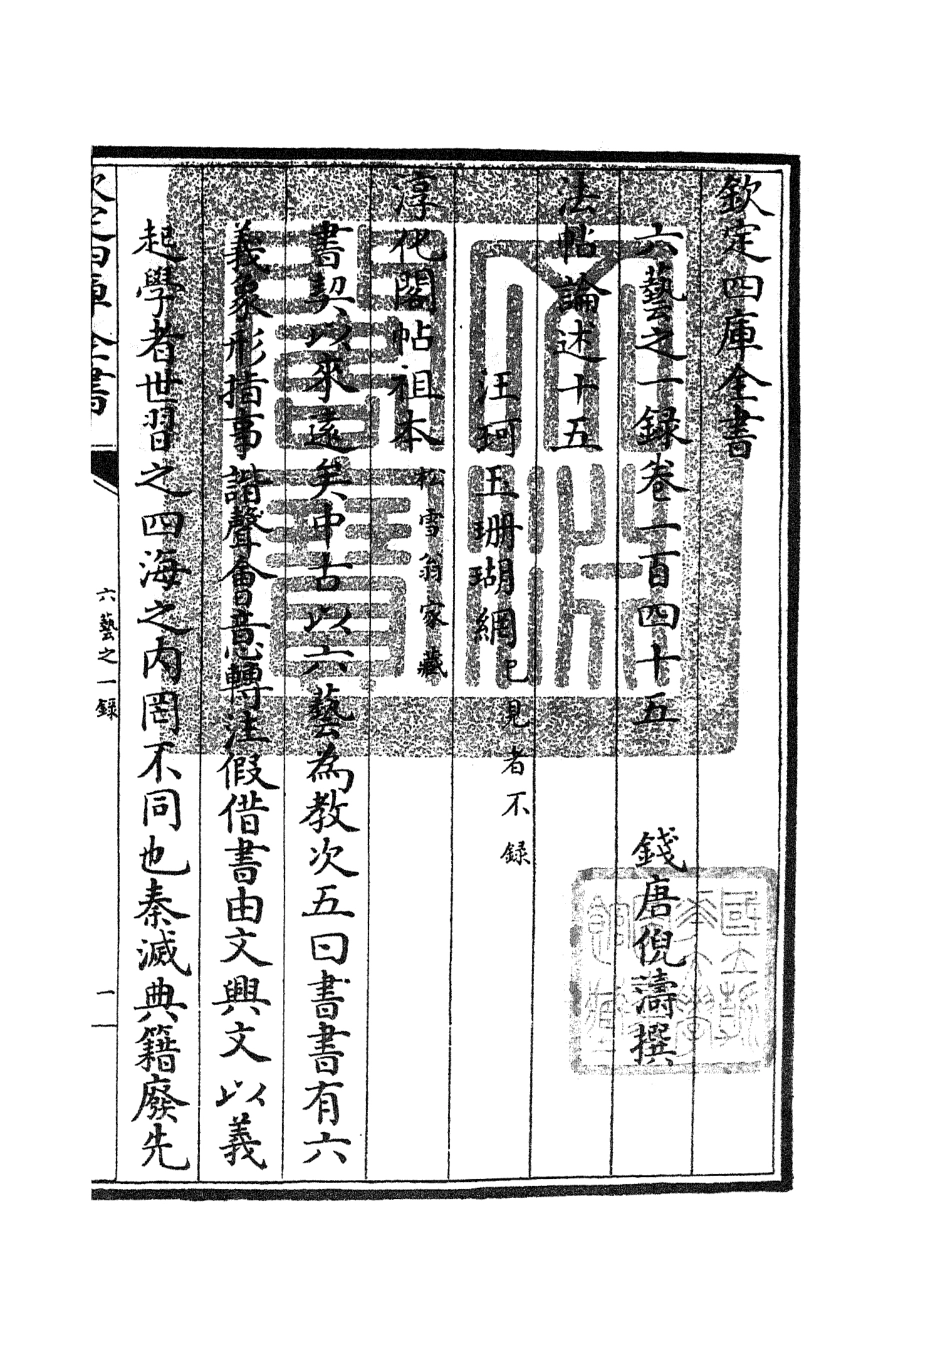 欽定四庫全書
六藝之一錄卷一百四十五
錢唐倪濤撰
法帖論述十五
汪珂玉珊瑚網已見者不錄
淳化閣帖祖本松雪翁家藏
書契以來逺矣中古以六藝為教次五曰書書有六
義象形指事諧聲會意轉注假借書由文興文以義
起學者世習之四海之内罔不同也秦滅典籍廢先
欽定四庫全書
六藝之一錄
一